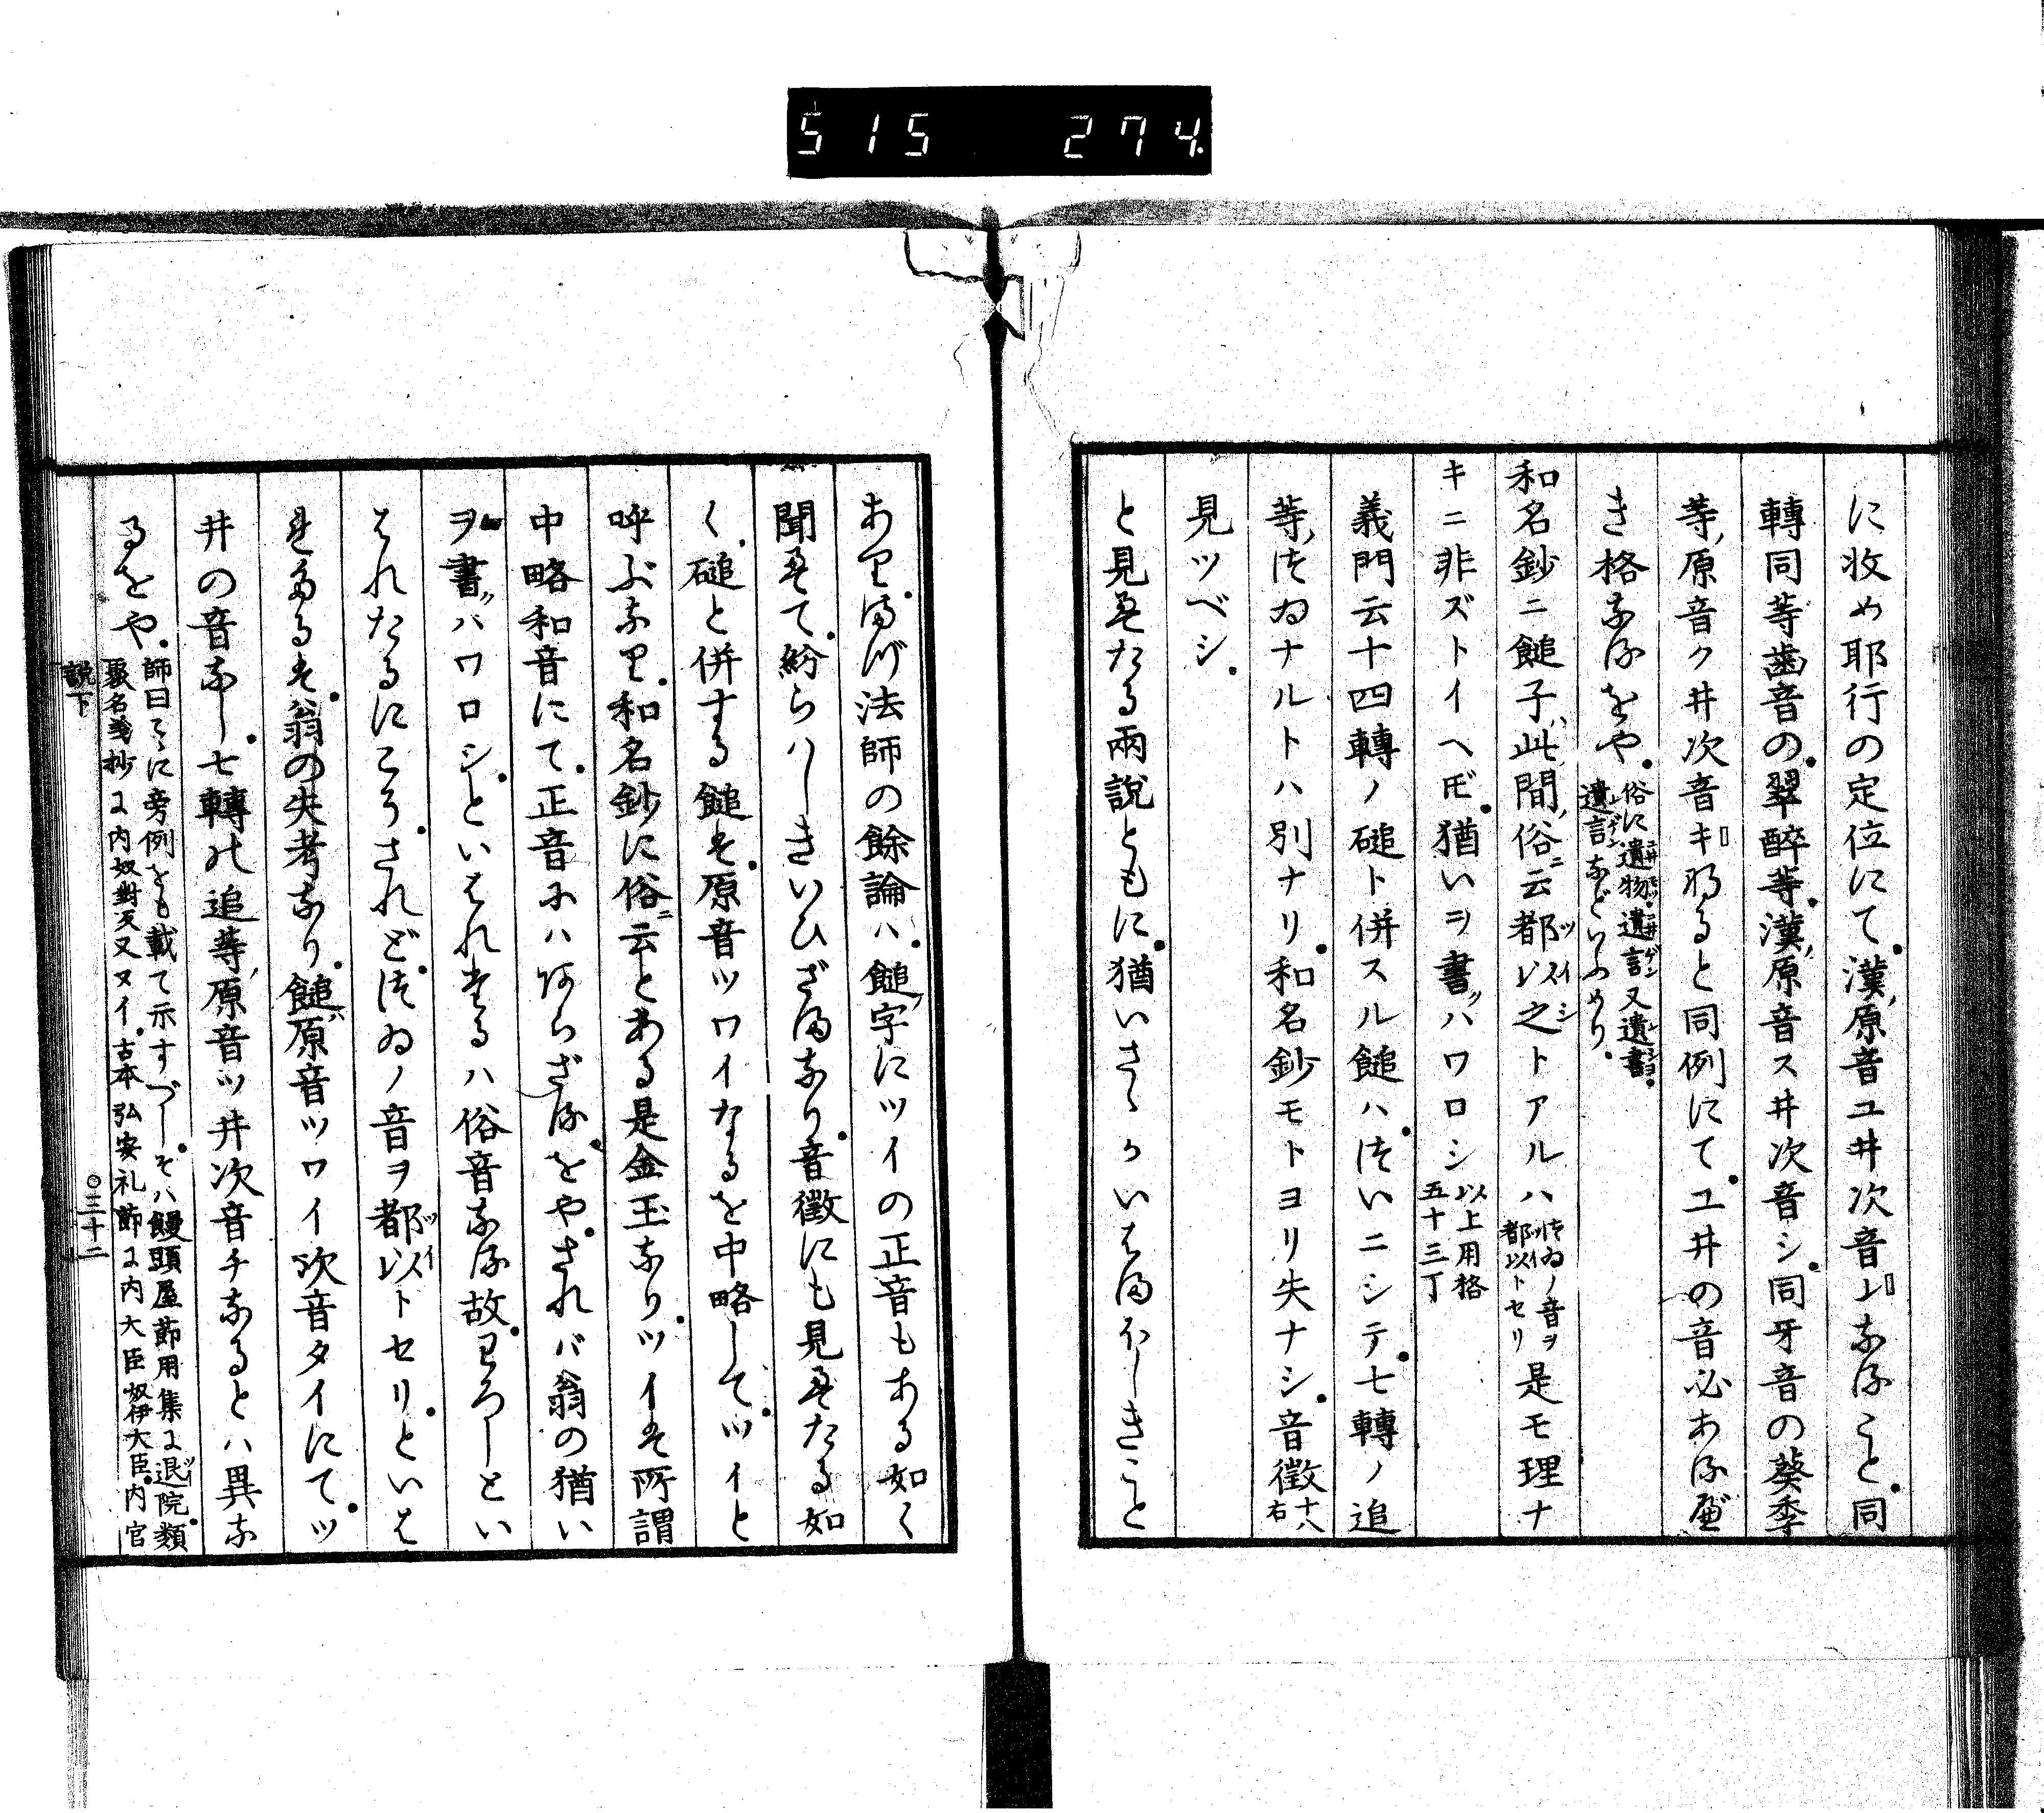 515 274.
に收め耶行の定位にて漢原音ユ井次音ユなることを同
轉同等齒音の翠醉等漢原音ス井次音シ同牙音の葵季
等原音ク井次音キなると同例にてユ井の音必ある
き格なるをや俗に遺物遺言又遺書遺言などいふめり
和名鈔ニ餛子此間俗ニ云都以之トアルハつゐノ音ヲ都以トセリ是モ理ナ
キニ非ズトイヘドモ猶いヲ書クハワロシ以上用格五十三丁
義門云十四轉ノ磓ト併スル䭔ハついニシテ七轉ノ追
等つゐナルトハ別ナリ和名鈔モトヨリ失ナシ音徵十八右
見ツベシ
と見えたる兩說ともに猶いさゝかいはまほしきこと
あり まづ法師の餘論ハ䭔字にツイの正音もある如く
聞えて紛らハしきいひざまなり音徵にも見えたる如
く磓と併する䭔は原音ツワイなるを中略してツイと
呼ぶなり和名鈔に俗ニ云とある是金玉なりツイは所謂
中略和音にて正音にハあらざるをやされバ翁の猶い
ヲ書クハワロシといはれたるハ俗音なる故わろしとい
はれたるにこうされどつゐノ音ヲ都以トセリといは
れたるは翁の失考なり䭔原音ツワイ次音タイにてツ
井の音なし七轉の追等原音ツ井次音チなるとハ異な
るをや師曰こゝに旁例をも載て示すべしそハ饅頭屋節用集に退院類
聚名義抄に内奴對天又ヌイ古本弘安礼節に内大臣奴伊大臣内官
說下 〇三十二